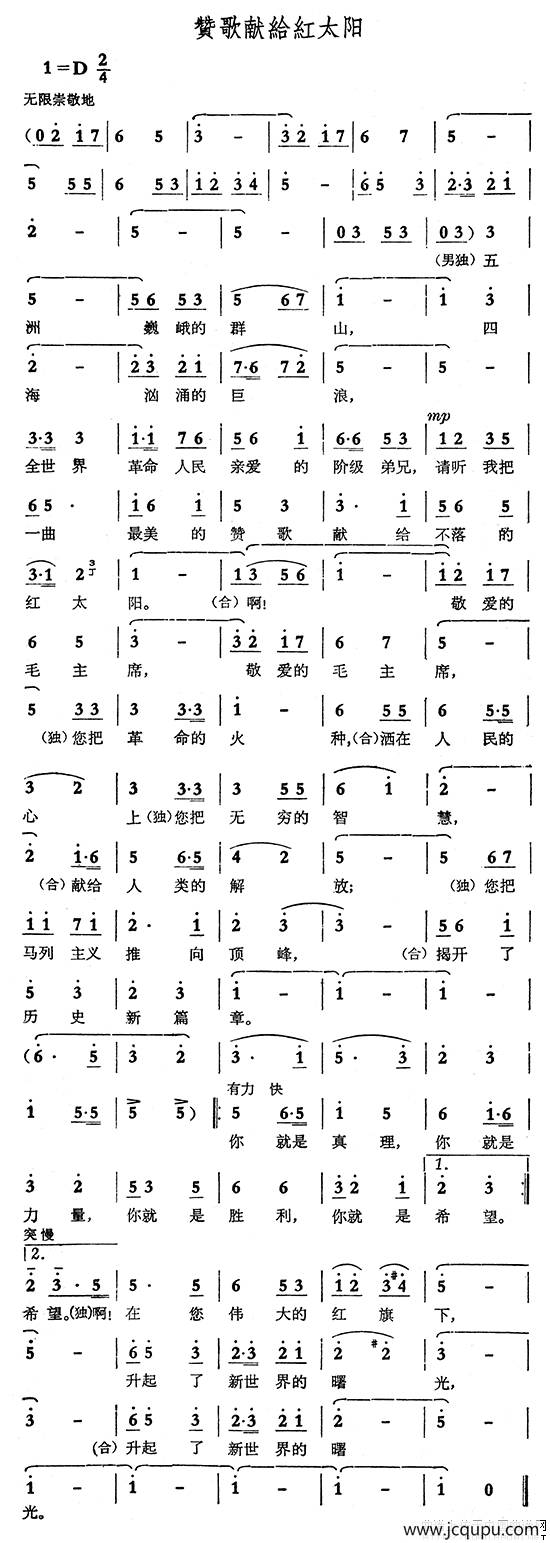 赞歌献給紅太阳
1=D 2/4
无限崇敬地
(0 2 1 7 | 6 5 | 3 - | 3 2 1 7 | 6 7 | 5 - |
5 5 5 | 6 5 3 | 1 2 3 4 | 5 - | 6 5 3 | 2·3 2 1 |
2 - | 5 - | 5 - | 0 3 5 3 | 0 3) 3 |
(男独)五
5 - | 5 6 5 3 | 5 6 7 | 1 - | 1 3 |
洲 巍峨的 群 山, 四
2 - | 2 3 2 1 | 7·6 7 2 | 5 - | 5 - |
海 汹涌的 巨 浪,
mp
3·3 3 | 1·1 7 6 | 5 6 1 | 6·6 5 3 | 1 2 3 5 |
全世界 革命人民 亲爱的 阶级弟兄, 请听我把
6 5 · | 1 6 1 | 5 3 | 3 · 1 | 5 6 5 |
一曲 最美的 赞歌 献给 不落的
3·1 2 3 | 1 - | 1 3 5 6 | 1 - | 1 2 1 7 |
红太 阳。 (合)啊! 敬爱的
6 5 | 3 - | 3 2 1 7 | 6 7 | 5 - |
毛主 席, 敬爱的 毛主 席,
5 3 3 | 3 3·3 | 1 - | 6 5 5 | 6 5·5 |
(独)您把 革命的 火 种,(合)洒在 人民的
3 2 | 3 3·3 | 3 5·5 | 6 1 | 2 - |
心 上(独)您把 无穷的 智 慧,
2 1·6 | 5 6·5 | 4 2 | 5 - | 5 6 7 |
(合)献给 人类的 解 放; (独)您把
1 1 7 1 | 2 · 1 | 2 3 | 3 - | 5 6 1 |
马列主义 推向 顶峰, (合)揭开了
5 3 | 2 3 | 1 - | 1 - | 1 - |
历史 新篇 章。
(6 · 5 | 3 2 | 3 · 1 | 5 · 3 | 2 3 |
有力 快
1 5·5 | 5 5) | 5 6·5 | 1 5 | 6 1·6 |
你就是 真理, 你就是
1.
3 2 | 5 3 5 | 6 6 | 3 2 1 | 2 3 |
力量, 你就是 胜利, 你就是 希望。
突慢
2.
2 3 · 5 | 5 · 5 | 6 5 3 | 1 2 #3 4 | 5 - |
希望。(独)啊! 在您 伟大的 红旗 下,
5 - | 6 5 3 | 2·3 2 1 | 2 #2 | 3 - |
升起了 新世界的 曙 光,
3 - | 6 5 3 | 2·3 2 1 | 2 - | 5 - |
(合)升起了 新世界的 曙
1 - | 1 - | 1 - | 1 - | 1 0 |
光。
www.jcqupu.com